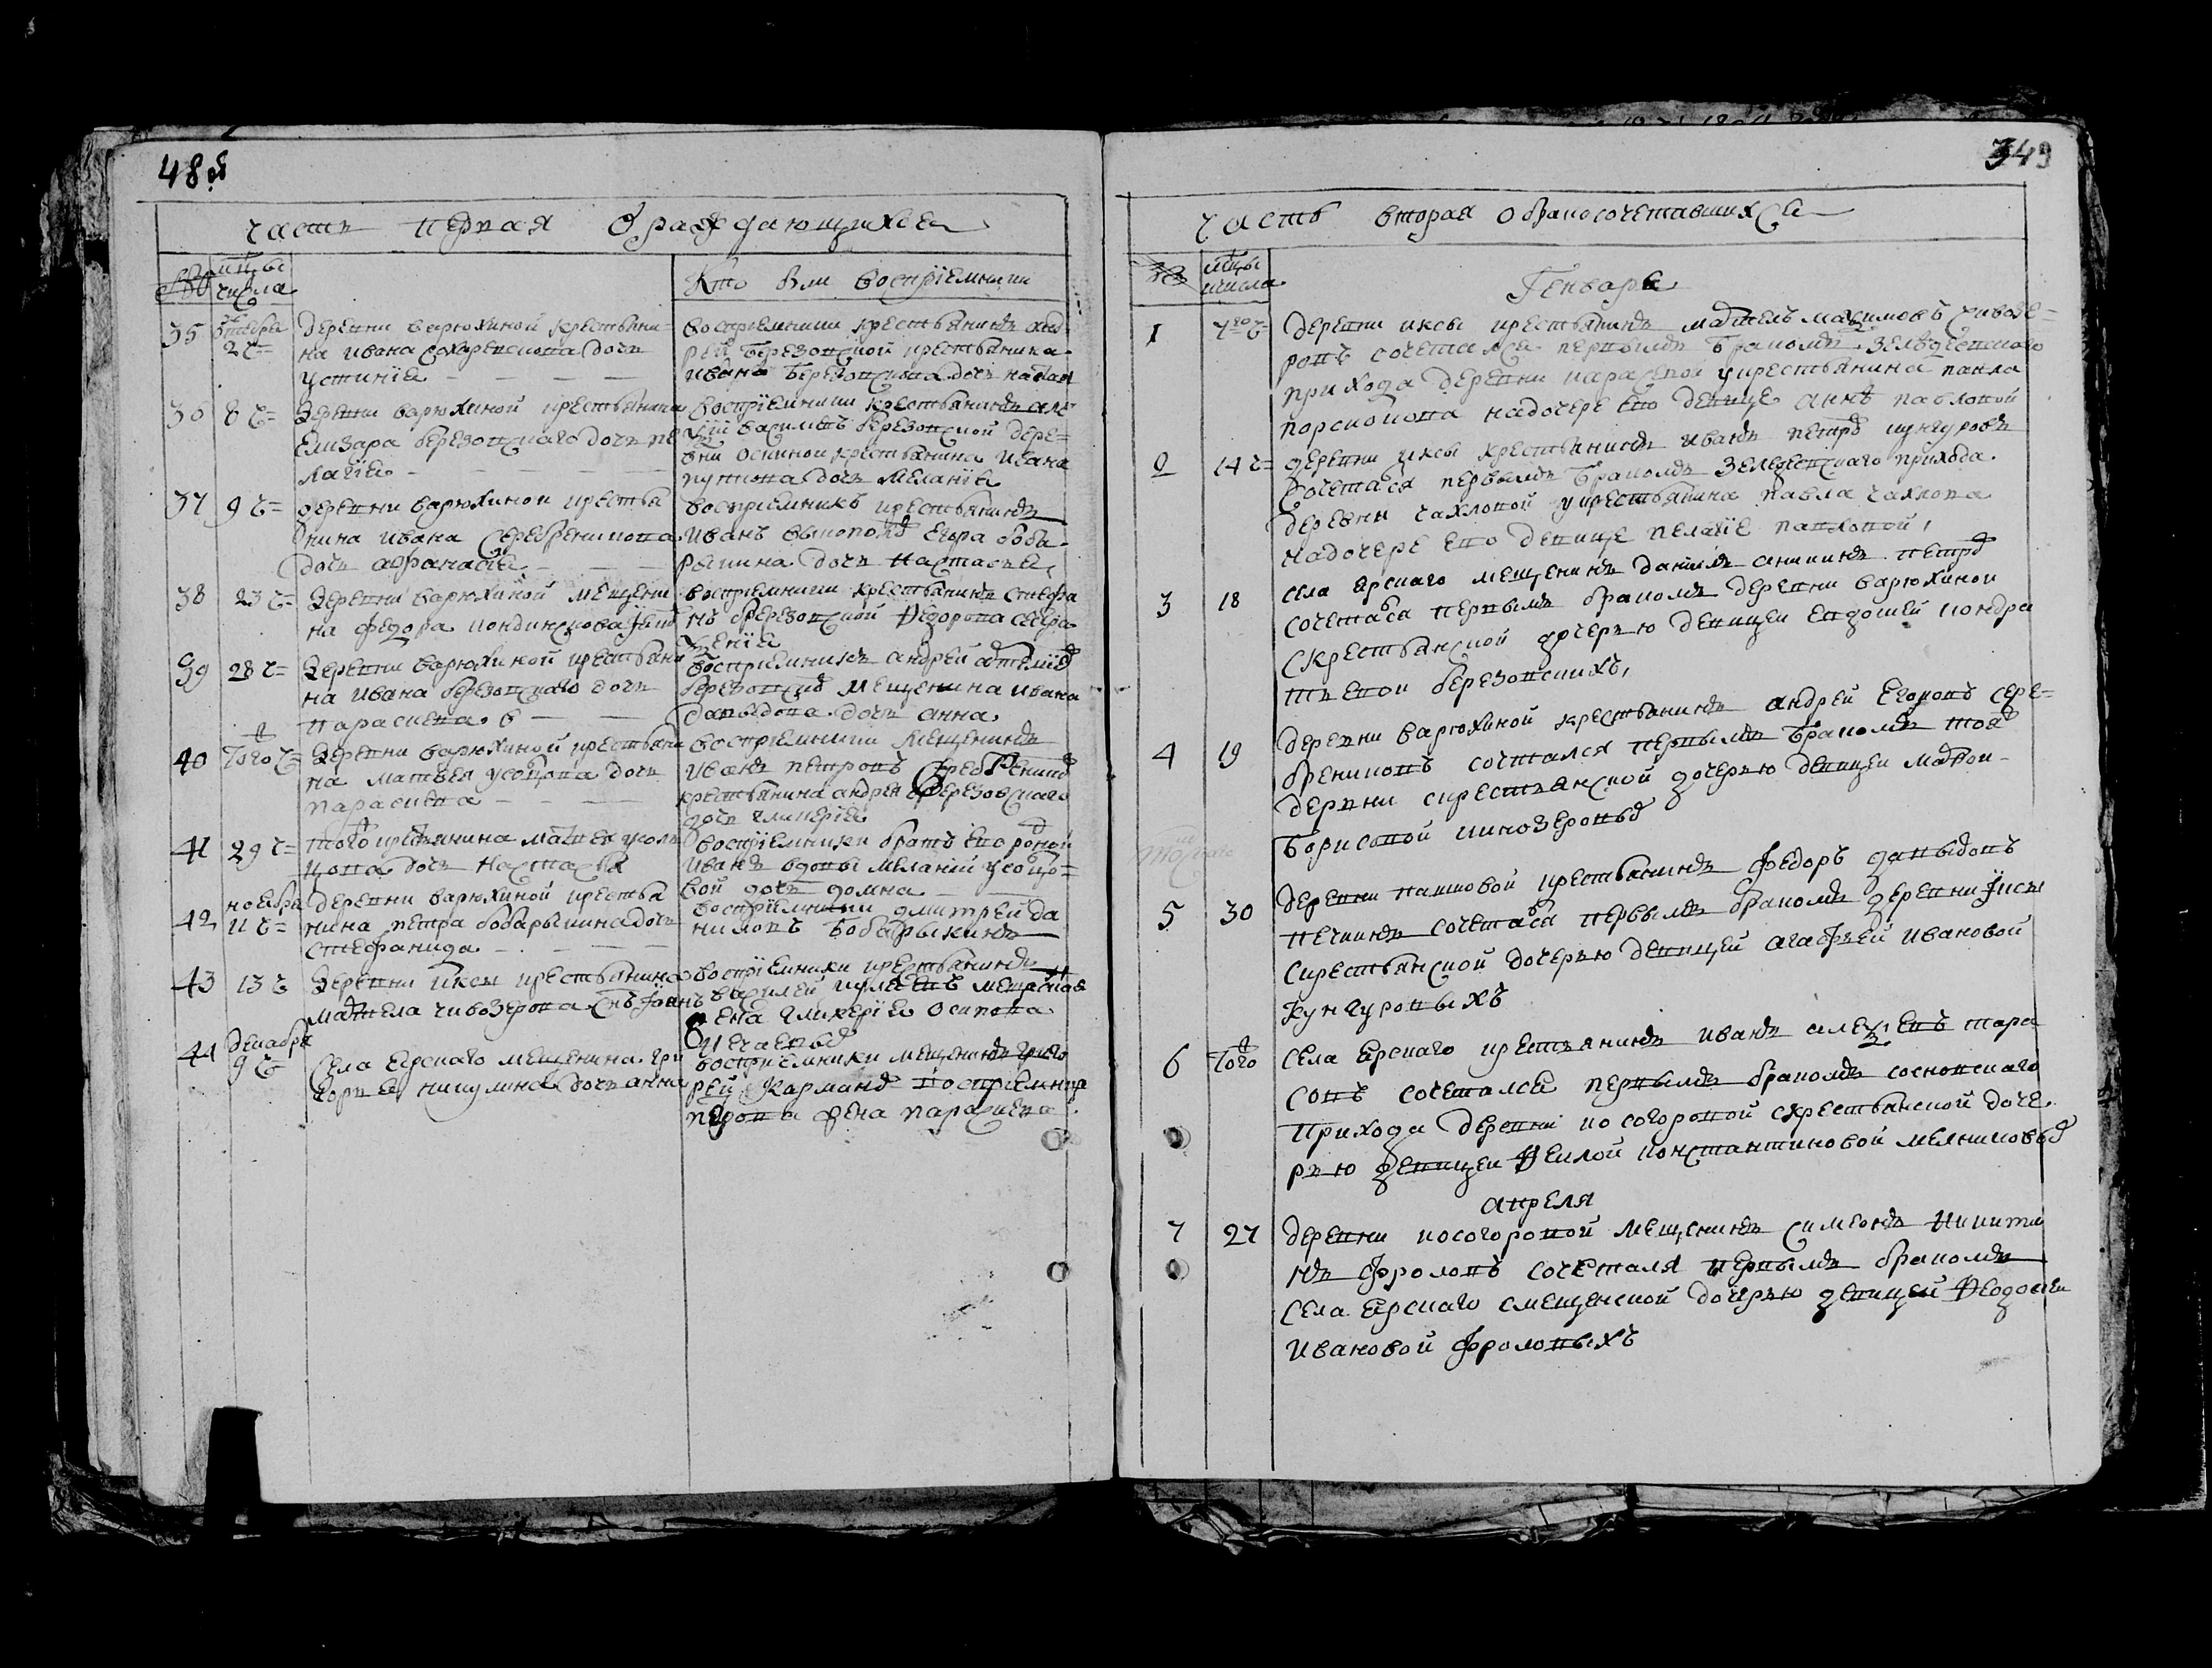 48
часть первая О раждающихся
мцы
числа
Кто были восприемники
35 Октября деревни варюхиной крестьяни=
2 ч= на ивана
устиніа
восприемники крестьянинъ анд
рей березовской крестьянина
ивана березовскова дочь
36 8 ч= деревни варюхиной крестьянина
елизара березовскаго дочь пе
лагіа
восприемники крестьянинъ але
ѯій васильевъ березовской дере=
вни крестьянина ивана
дочь меланіа
37 9 ч= деревни варюхиной крестья
нина ивана серебреникова
дочь афанасіа
восприемникъ крестьянинъ
иванъ егора боба
рыкина дочь настасья
38 23 ч= деревни варюхиной мещени
на федора кондинскова
восприемники крестьянинъ стефа
нъ березовской федорова сестра
ѯеніа
39 28 ч= деревни варюхиной крестьяни
на ивана березовскаго дочь
параскева
восприемникъ андрей
березовской мещенина ивана
давыдова дочь анна
40 того ч= деревни варюхиной крестьяни
на матвея усолцова дочь
параскева
восприемники мещенинъ
иванъ петровъ серебрениковъ
крестьянина андрея березовскаго
дочь гликеріа
41 29 ч= того крестьянина матвея усол
цова дочь настасья
восприемники братъ его родной
иванъ вдовы меланіи усолцо=
вой дочь домна
ноября деревни варюхиной крестья
42 11 ч= нина петра бобарыкина дочь
стефанида
восприемники дмитрей да
ниловъ бобарыкинъ
43 13 ч деревни иксы крестьянина
матвея чивозерова снъ іоаннъ
восприемники крестьянинъ
василей
жена гликеріа осипова
нечаевыхъ
декабря
44 9 ч села ярскаго мещенина гри
горья никулина дочь анна
восприемники мещенинъ григо
рей карманов восприемница
жена параскева
349
часть вторая О бракосочетавшихся
мцы
и числа
Генваря
1 7го ч= деревни иксы крестьянинъ матвей маѯимовъ чивозе=
ровъ сочетался первымъ бракомъ зеледеевскаго
прихода деревни карасевой у крестьянина павла
порсмокова на дочере его девице аннѣ павловой
2 14 ч= деревни иксы крестьянинъ иванъ петров кунгуровъ
сочетася первымъ бракомъ зеледеевскаго прихода
деревни чахловой у крестьянина павла чахлова
на дочере его девице пелагіе павловой,
3 18 села ярскаго мещенинъ данила аникинъ петров
сочетася первымъ бракомъ деревни варюхиной
с крестьянской дочерью девицей евдокией кондра
тьевой березовскихъ,
4 19 деревни варюхиной крестьянинъ андрей егоровъ сере=
брениковъ сочтался первымъ бракомъ тояж
деревни с крестьянской дочерью девицей матвои
борисовой чивозеровых
5 30 деревни пашковой крестьянинъ федоръ давыдовъ
печкинъ сочетася первымъ бракомъ деревни іксы
с крестьянской дочерью девицей агафьей ивановой
кунгуровыхъ
6 того села ярскаго крестьянинъ иванъ алеѯеевъ тара
совъ сочетался первымъ бракомъ сосновскаго
прихода деревни косогоровой с крестьянской доче
рью девицей феклой константиновой мелниковых
апреля
7 27 деревни косогоровой мещенинъ симеонъ никити
нъ фроловъ сочетался первымъ бракомъ
села ярскаго с мещенской дочерью девицей феодосьи
ивановой фроловыхъ